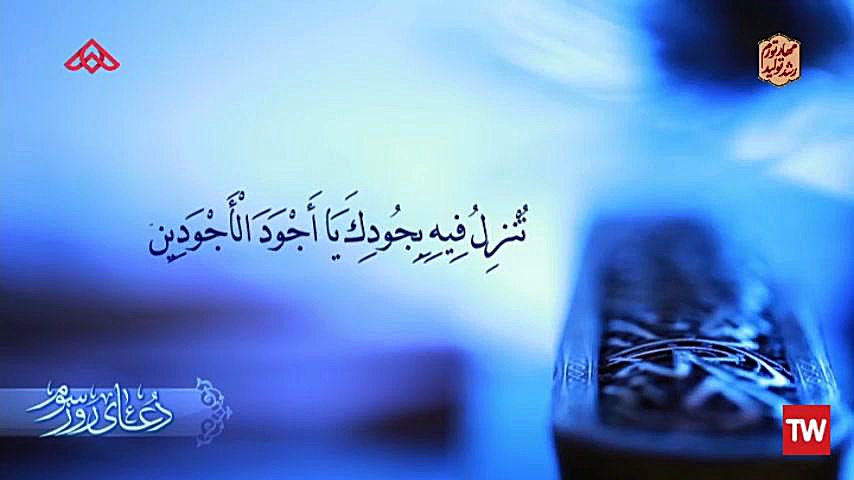 مهار تورم
رشد تولید
تُنْزِلُ فِيهِ بِجُودِكَ يَا أَجْوَدَ الْأَجْوَدِينَ
دُعای روز سوم
TW